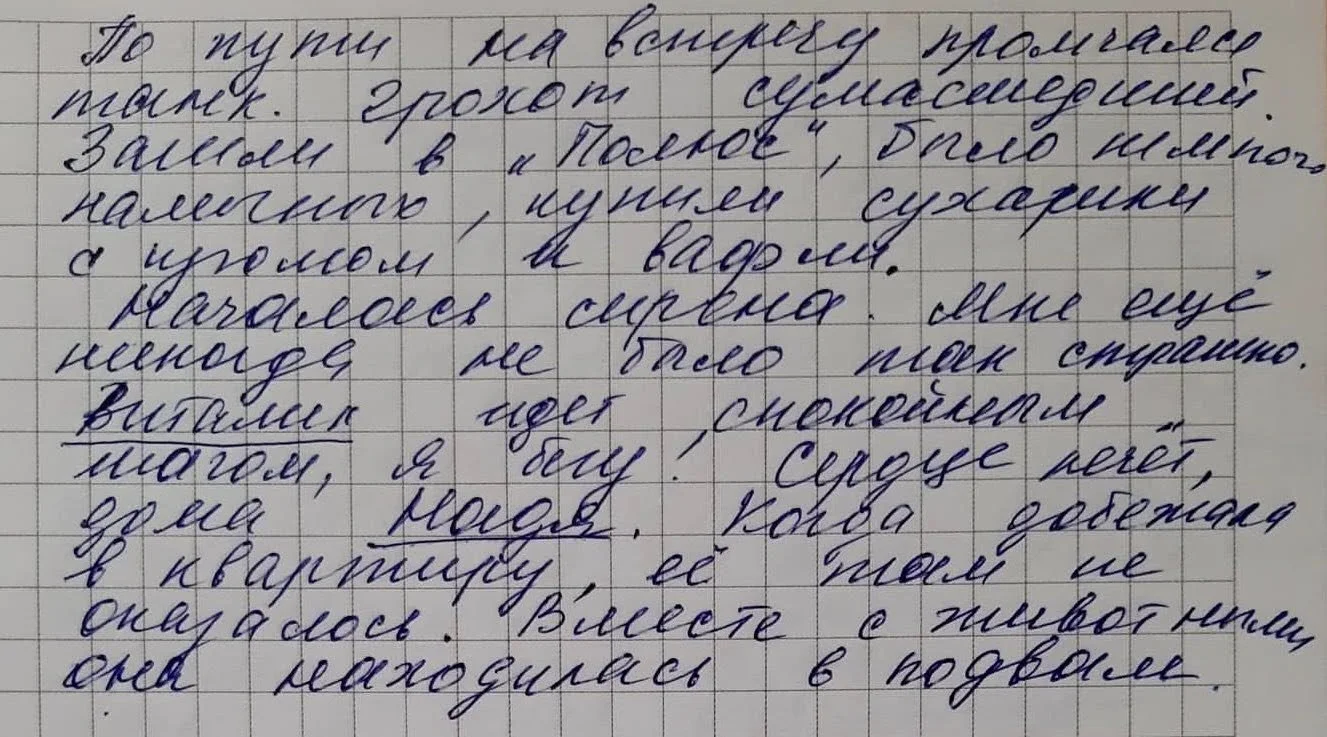 По пути на встречу промчался
танк. Грохот сумасшедший.
Зашли в „Полюс“, было немного
наличных, купили сухарики
с изюмом и вафли.
Началась сирена. Мне ещё
никогда не было так страшно.
Виталик идет спокойным
шагом, я бегу! Сердце печёт,
дома Надя. Когда добежала
в квартиру, её там не
оказалось. Вместе с животными
она находилась в подвале.